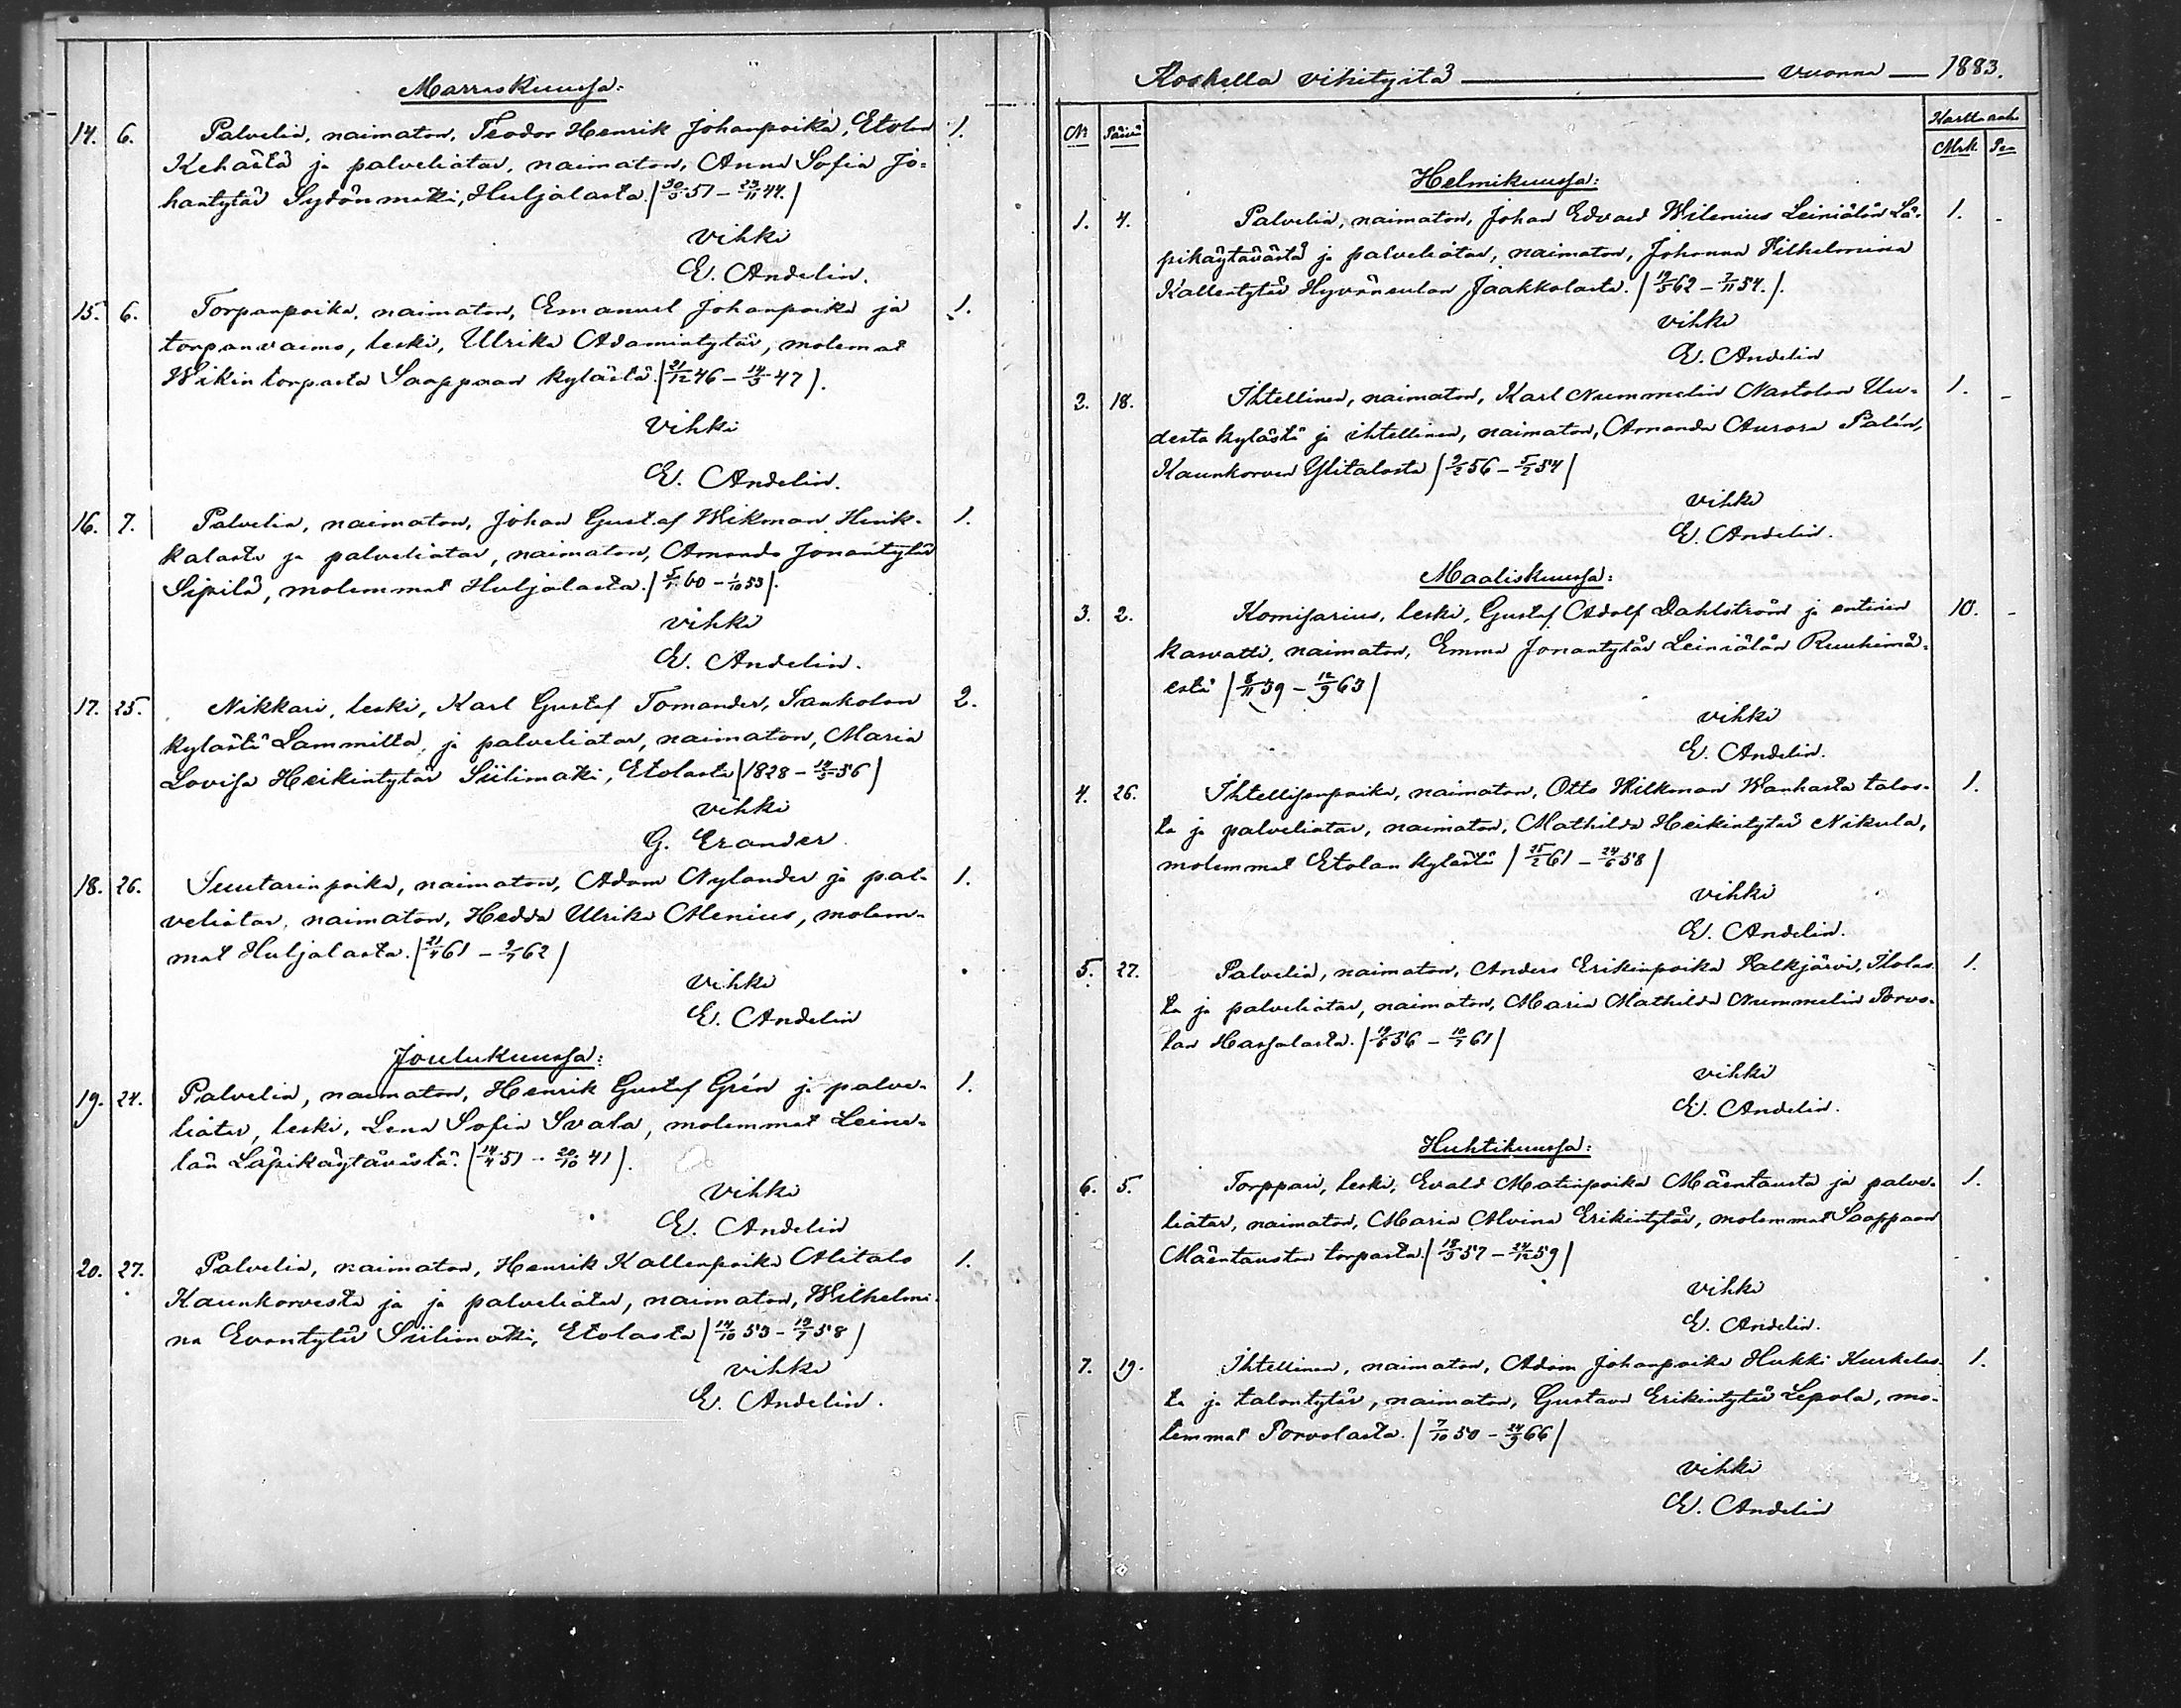 Marraskuussa:
14. 6. Palvelia, naimaton, Teodor Henrik Johanpoika, Etolan 1.
Kehästä ja palveliatar, naimaton, Anna Sofia Jo-
hantytär Sydänmäki, Huljalasta. (30/5 51 – 23/11 44.)
vihki
E. Andelin.
15. 6. Torpanpoika, naimaton, Emanuel Johanpoika ja 1.
torpanvaimo, leski, Ulrika Adamintytär, molemat
Wikin torpasta Saappaan kylästä. (21/12 46 – 14/3 47).
vihki
E. Andelin.
16. 7. Palvelia, naimaton, Johan Gustaf Wikman Hinik- 1.
kalasta ja palveliatar, naimaton, Amanda Jonantytär
Sipilä, molemmat Huljalasta. (5/1 60 – 1/10 53).
vihki
E. Andelin.
17. 25. Nikkari, leski, Karl Gustaf Tomander, Sankolan 2.
kylästä Lammilta, ja palveliatar, naimaton, Maria
Lovisa Heikintytär Siilimäki, Etolasta (1828 – 14/3 56)
vihki
G. Erander.
18. 26. Suutarinpoika, naimaton, Adam Nylander ja pal- 1.
veliatar, naimaton, Hedda Ulrika Alenius, molem-
mat Huljalasta. (21/4 61 – 2/7 62)
vihki
E. Andelin
Joulukuussa:
19. 24. Palvelia, naimaton, Henrik Gustaf Grén ja palve- 1.
liatar, leski, Lena Sofia Svala, molemmat Leine-
län Läpikäytävästä. (14/4 51 – 20/10 41).
vihki
E. Andelin
20. 27. Palvelia, naimaton, Henrik Kallenpoika Alitalo 1.
Kaunkorvesta ja ja palveliatar, naimaton, Wilhelmi-
na Evantytär Siilimäki, Etolasta (14/10 53 – 19/7 58)
vihki
E. Andelin.
Koskella vihityitä vuonna 1883.
Nr Päivä Kartt. raha
Mrk. Pen
Helmikuussa:
1. 4. Palvelia, naimaton, Johan Edvard Wilenius Leiniälän Lä- 1. -
pikäytävästä ja palveliatar, naimaton, Johanna Vilhelmina
Kallentytär Hyväneulan Jaakkolasta. (19/5 62 – 7/11 54.).
vihki
E. Andelin
2. 18. Ihtellinen, naimaton, Karl Nummelin Nastolan Uu- 1. -
desta kylästä ja ihtellinen, naimaton, Amanda Aurora Palén,
Kaunkorven Ylitalosta (9/2 56 – 5/2 54)
vihki
E. Andelin.
Maaliskuussa:
3. 2. Komisarius, leski, Gustaf Adolf Dahlström ja entinen 10. -
kasvatti, naimaton, Emma Jonantytär Leiniälän Ruuhimä-
estä (8/11 39 – 12/9 63)
vihki
E. Andelin.
4. 26. Ihtellisenpoika, naimaton, Otto Wilkman Wanhasta talos- 1.
ta ja palveliatar, naimaton, Mathilda Heikintytär Nikula,
molemmat Etolan kylästä (25/2 61 – 24/6 58)
vihki
E. Andelin.
5. 27. Palvelia, naimaton, Anders Erikinpoika Valkjärvi, Ilolas- 1.
ta ja palveliatar, naimaton, Maria Mathilda Nummelin Porvo-
lan Hassalasta. (19/6 56 – 10/7 61)
vihki
E. Andelin.
Huhtikuussa:
6. 5. Torppari, leski, Evald Matinpoika Mäentausta ja palve- 1.
liatar, naimaton, Maria Alvina Erikintytär, molemmat Saappaan
Mäentaustan torpasta. (18/3 57 – 24/12 59)
vihki
E. Andelin.
7. 19. Ihtellinen, naimaton, Adam Johanpoika Hukki Kurkelas- 1.
ta ja talontytär, naimaton, Gustava Erikintytär Lepola, mo-
lemmat Porvolasta. (7/10 50 – 24/9 66)
vihki
E. Andelin